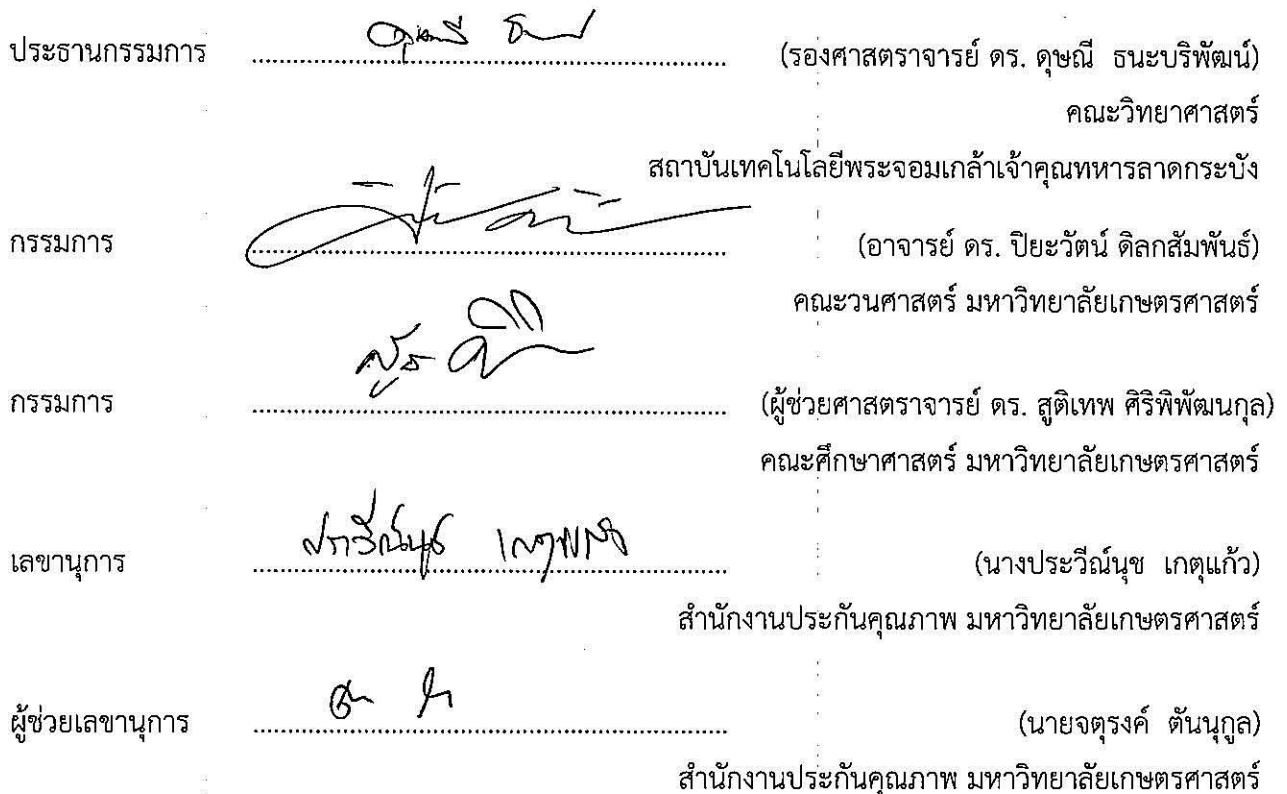 ประธานกรรมการ ........................ (รองศาสตราจารย์ ดร. ดุษณี ธนะบริพัฒน์)
คณะวิทยาศาสตร์
สถาบันเทคโนโลยีพระจอมเกล้าเจ้าคุณทหารลาดกระบัง
กรรมการ ........................ (อาจารย์ ดร. ปิยะวัตน์ ดิลกสัมพันธ์)
คณะวนศาสตร์ มหาวิทยาลัยเกษตรศาสตร์
กรรมการ ........................ (ผู้ช่วยศาสตราจารย์ ดร. สูติเทพ ศิริพิพัฒนกุล)
คณะศึกษาศาสตร์ มหาวิทยาลัยเกษตรศาสตร์
ประวีณ์นุช เกตุแก้ว
เลขานุการ ........................ (นางประวีณ์นุช เกตุแก้ว)
สำนักงานประกันคุณภาพ มหาวิทยาลัยเกษตรศาสตร์
ผู้ช่วยเลขานุการ ........................ (นายจตุรงค์ ตันนุกูล)
สำนักงานประกันคุณภาพ มหาวิทยาลัยเกษตรศาสตร์